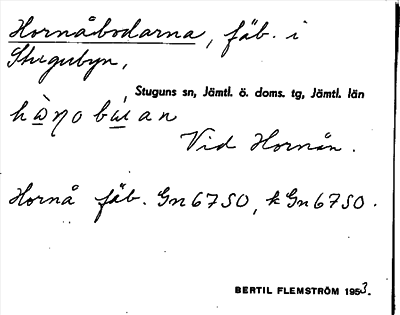 Hornåbodarna, fäb. i
Stugubyn,
Stuguns sn, Jämtl. ö. doms. tg, Jämtl. län
Vid Hornån.
Hornå fäb. Gn 67 SO, k Gn 67 SO.
BERTIL FLEMSTRÖM 1953.